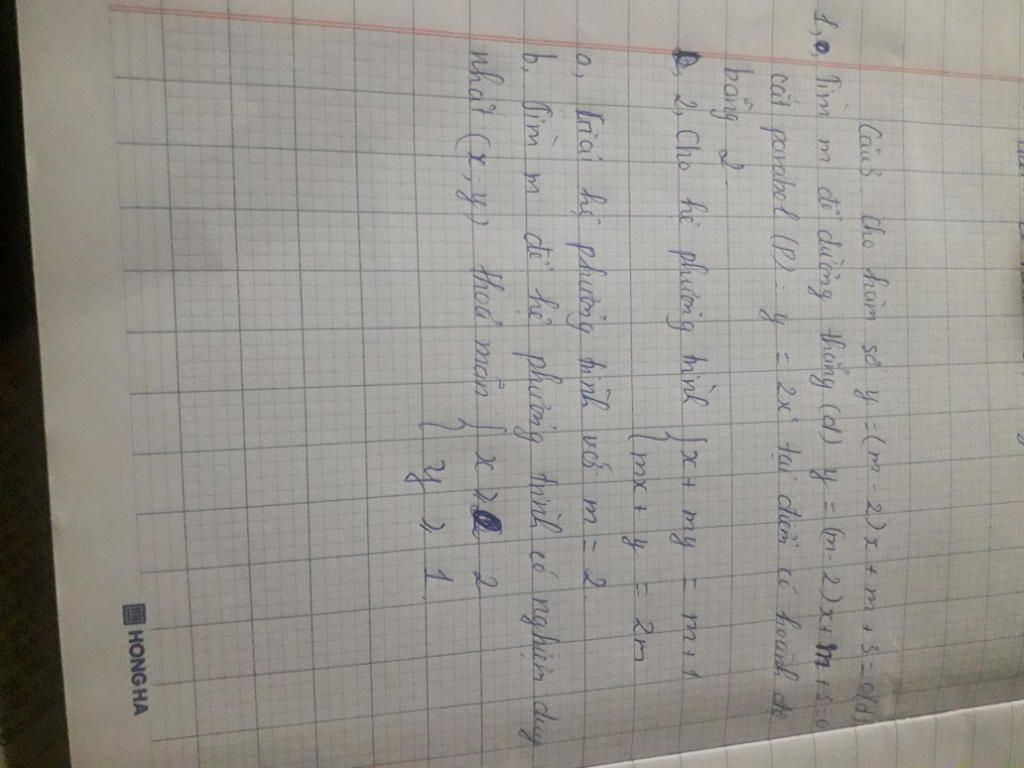 Câu 3. Cho hàm số y = (m - 2)x + m + 3 = 0(d)
1, a, Tìm m để đường thẳng (d) y = (m - 2)x + m + 3 = 0
cắt parabol (P): y = 2x² tại điểm có hoành độ
bằng 2.
2, Cho hệ phương trình { x + my = m + 1
{ mx + y = 2m
a, Giải hệ phương trình với m = 2.
b, Tìm m để hệ phương trình có nghiệm duy
nhất (x, y) thoả mãn { x ≥ 2
{ y ≥ 1
HONG HA